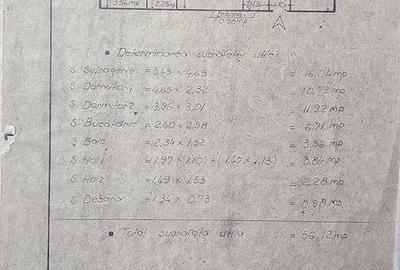 3.56mp 2.28mp
S Debara
0.98mp
Determinarea suprafetei utile
S Sufragerie = 3,45 × 4,65 = 16,04 mp
S Dormitor1 = 4,65 × 2,32 = 10,79 mp
S Dormitor2 = 3,96 × 3,01 = 11,92 mp
S Bucatarie = 2,60 × 2,58 = 6,71 mp
S Baie = 2,34 × 1,52 = 3,56 mp
S Hol1 = (1,97 × 1,10) + (1,47 × 1,13) = 3,84 mp
S Hol2 = 1,49 × 1,53 = 2,28 mp
S Debara = 1,34 × 0,73 = 0,98 mp
Total suprafata utila = 56,12 mp